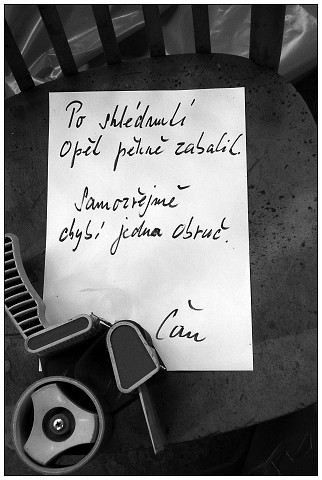 Po shlédnutí
Opět pěkně zabalit.
Samozřejmě
chybí jedna obruč.
Čan